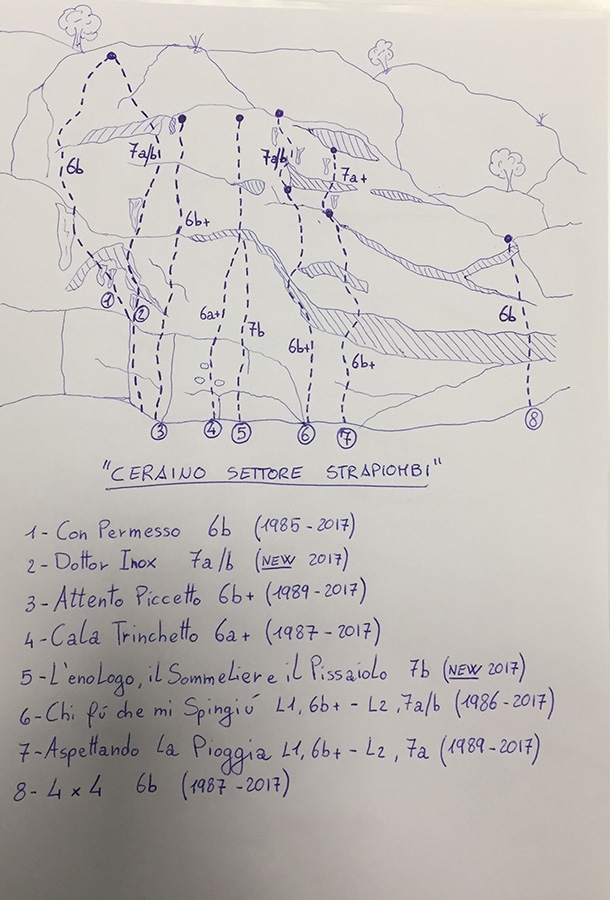 6b
7a/b
7a/b
7a+
6b+
6a+
7b
6b+
6b+
6b
1
2
3
4
5
6
7
8
"CERAINO SETTORE STRAPIOMBI"
1- Con Permesso 6b (1985-2017)
2- Dottor Inox 7a/b (NEW 2017)
3- Attento Piccetto 6b+ (1989-2017)
4- Cala Trinchetto 6a+ (1987-2017)
5- L'enologo, il Sommelier e il Pissaiolo 7b (NEW 2017)
6- Chi fú che mi Spingiú L1, 6b+ - L2, 7a/b (1986-2017)
7- Aspettando La Pioggia L1, 6b+ - L2, 7a (1989-2017)
8- 4 x 4 6b (1987-2017)